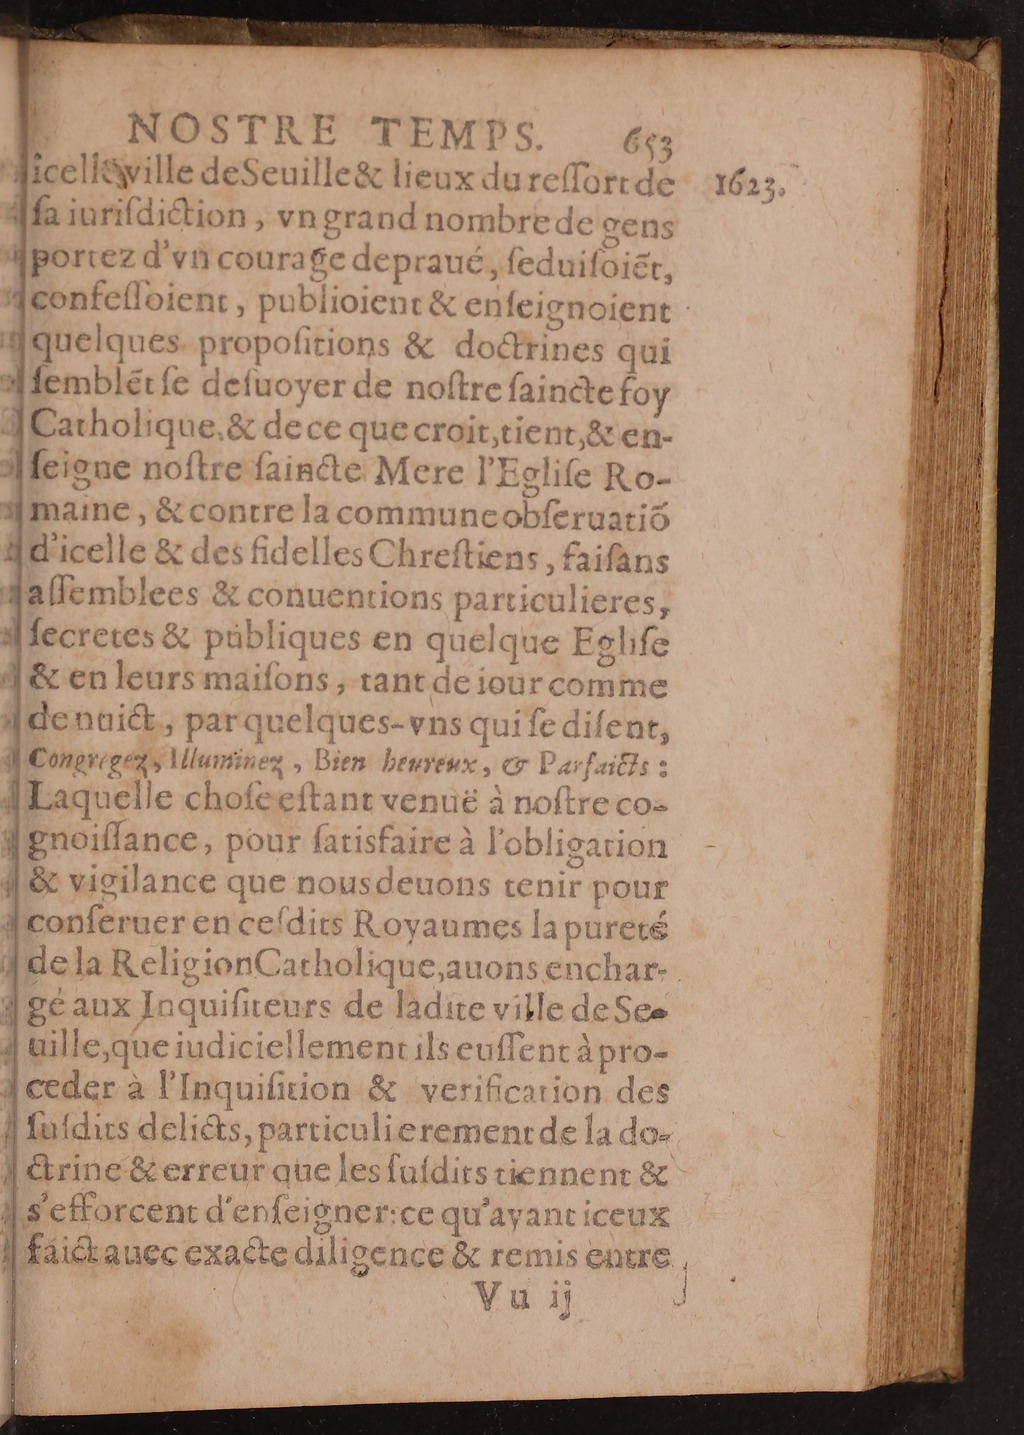 NOSTRE TEMPS. 653
icelle ville de Seuille & lieux du reſſort de 1623.
ſa iuriſdiction, vn grand nombre de gens
portez d'vn courage depraué, ſeduiſoiẽt,
confeſſoient, publioient & enſeignoient
quelques propoſitions & doctrines qui
ſemblẽt ſe deſuoyer de noſtre ſaincte foy
Catholique, & de ce que croit, tient, & en-
ſeigne noſtre ſaincte Mere l'Egliſe Ro-
maine, & contre la commune obſeruatiõ
d'icelle & des fidelles Chreſtiens, faiſans
aſſemblees & conuentions particulieres,
ſecretes & publiques en quelque Egliſe
& en leurs maiſons, tant de iour comme
de nuict, par quelques-vns qui ſe diſent,
Congregez, Illuminez, Bien heureux, & Parfaicts :
Laquelle choſe eſtant venuë à noſtre co-
gnoiſſance, pour ſatisfaire à l'obligation
& vigilance que nous deuons tenir pour
conſeruer en ceſdits Royaumes la pureté
de la Religion Catholique, auons enchar-
gé aux Inquiſiteurs de ladite ville de Se-
uille, que iudiciellement ils euſſent à pro-
ceder à l'Inquiſition & verification des
ſuſdits delicts, particulierement de la do-
ctrine & erreur que les ſuſdits tiennent &
s'efforcent d'enſeigner: ce qu'ayant iceux
faict auec exacte diligence & remis entre
Vu ij